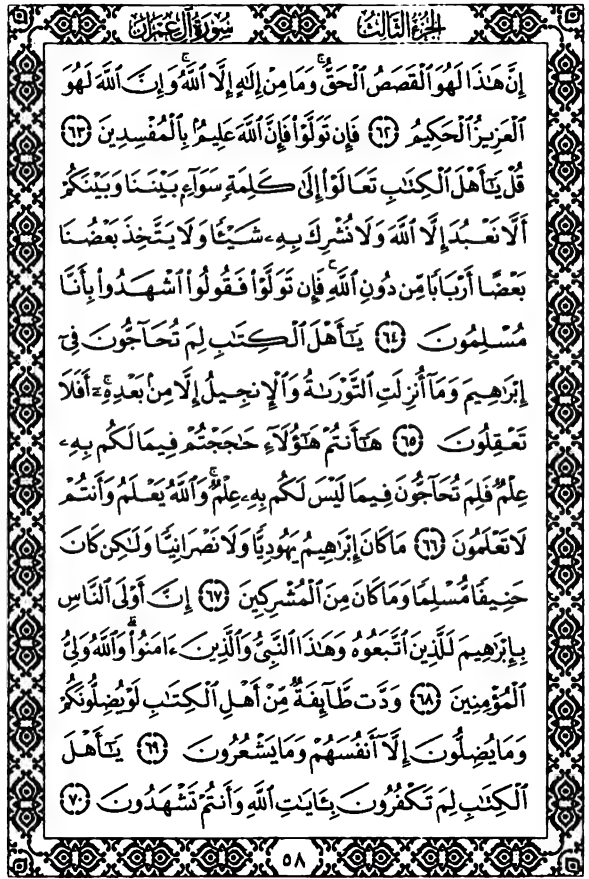 الجزء الثالث
سورة آل عمران
إِنَّ هَٰذَا لَهُوَ ٱلْقَصَصُ ٱلْحَقُّۚ وَمَا مِنْ إِلَٰهٍ إِلَّا ٱللَّهُۚ وَإِنَّ ٱللَّهَ لَهُوَ
ٱلْعَزِيزُ ٱلْحَكِيمُ ٦٢ فَإِن تَوَلَّوْا۟ فَإِنَّ ٱللَّهَ عَلِيمٌۢ بِٱلْمُفْسِدِينَ ٦٣
قُلْ يَٰٓأَهْلَ ٱلْكِتَٰبِ تَعَالَوْا۟ إِلَىٰ كَلِمَةٍ سَوَآءٍۭ بَيْنَنَا وَبَيْنَكُمْ
أَلَّا نَعْبُدَ إِلَّا ٱللَّهَ وَلَا نُشْرِكَ بِهِۦ شَيْـًٔا وَلَا يَتَّخِذَ بَعْضُنَا
بَعْضًا أَرْبَابًا مِّن دُونِ ٱللَّهِۚ فَإِن تَوَلَّوْا۟ فَقُولُوا۟ ٱشْهَدُوا۟ بِأَنَّا
مُسْلِمُونَ ٦٤ يَٰٓأَهْلَ ٱلْكِتَٰبِ لِمَ تُحَآجُّونَ فِىٓ
إِبْرَٰهِيمَ وَمَآ أُنزِلَتِ ٱلتَّوْرَىٰةُ وَٱلْإِنجِيلُ إِلَّا مِنۢ بَعْدِهِۦٓۚ أَفَلَا
تَعْقِلُونَ ٦٥ هَٰٓأَنتُمْ هَٰٓؤُلَآءِ حَٰجَجْتُمْ فِيمَا لَكُم بِهِۦ
عِلْمٌ فَلِمَ تُحَآجُّونَ فِيمَا لَيْسَ لَكُم بِهِۦ عِلْمٌۚ وَٱللَّهُ يَعْلَمُ وَأَنتُمْ
لَا تَعْلَمُونَ ٦٦ مَا كَانَ إِبْرَٰهِيمُ يَهُودِيًّا وَلَا نَصْرَانِيًّا وَلَٰكِن كَانَ
حَنِيفًا مُّسْلِمًا وَمَا كَانَ مِنَ ٱلْمُشْرِكِينَ ٦٧ إِنَّ أَوْلَى ٱلنَّاسِ
بِإِبْرَٰهِيمَ لَلَّذِينَ ٱتَّبَعُوهُ وَهَٰذَا ٱلنَّبِىُّ وَٱلَّذِينَ ءَامَنُوا۟ۗ وَٱللَّهُ وَلِىُّ
ٱلْمُؤْمِنِينَ ٦٨ وَدَّت طَّآئِفَةٌ مِّنْ أَهْلِ ٱلْكِتَٰبِ لَوْ يُضِلُّونَكُمْ
وَمَا يُضِلُّونَ إِلَّآ أَنفُسَهُمْ وَمَا يَشْعُرُونَ ٦٩ يَٰٓأَهْلَ
ٱلْكِتَٰبِ لِمَ تَكْفُرُونَ بِـَٔايَٰتِ ٱللَّهِ وَأَنتُمْ تَشْهَدُونَ ٧٠
٥٨